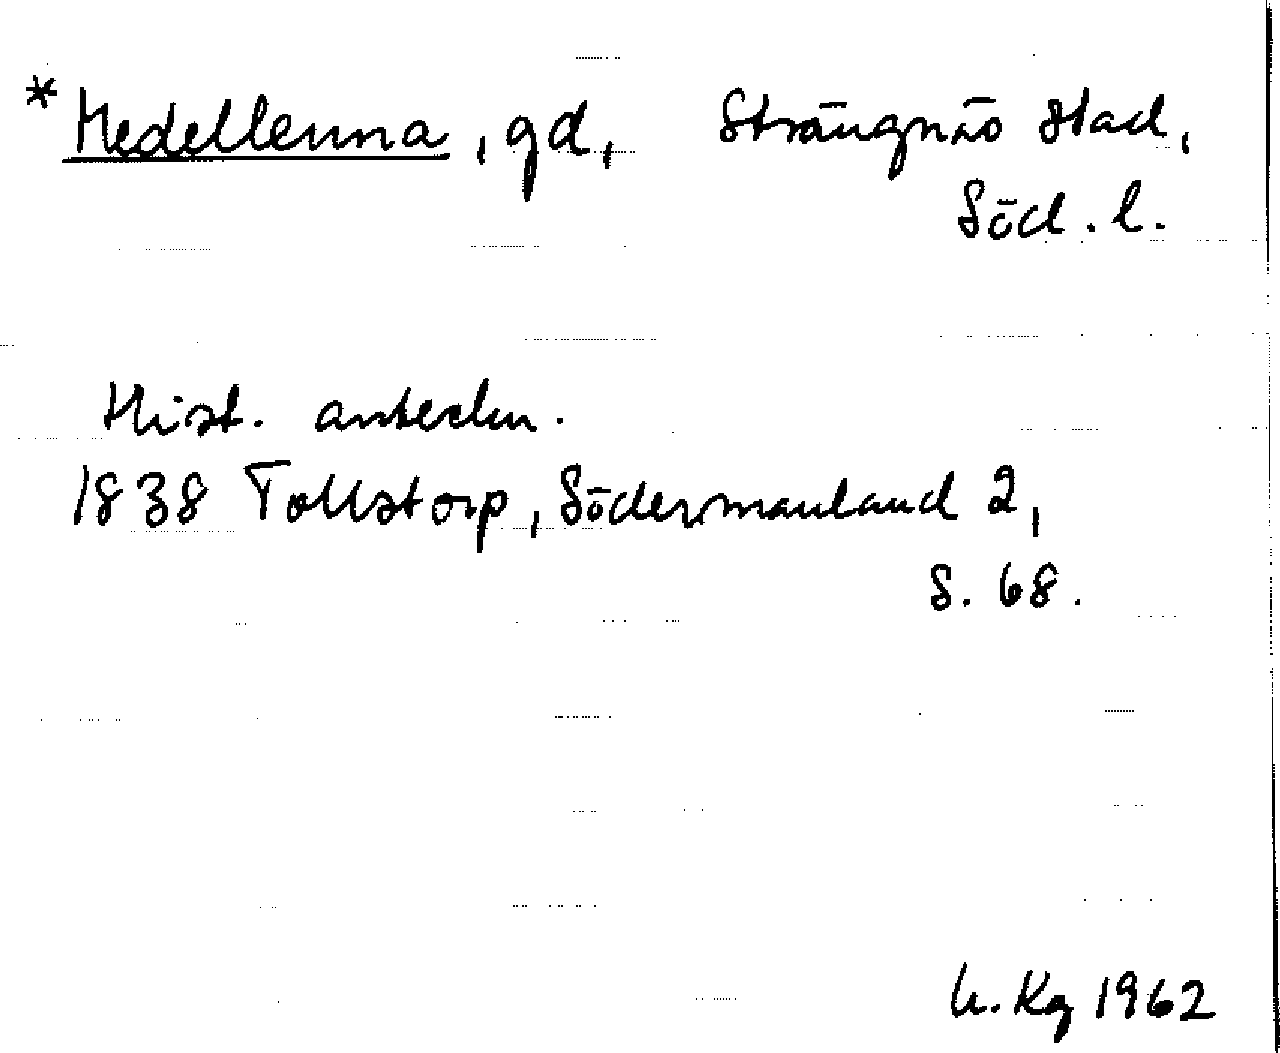 * Medellenna, gd, Strängnäs stad,
Söd. l.
Hist. anteckn.
1838 Tollstorp, Södermanland 2,
S. 68.
U. Kg 1962